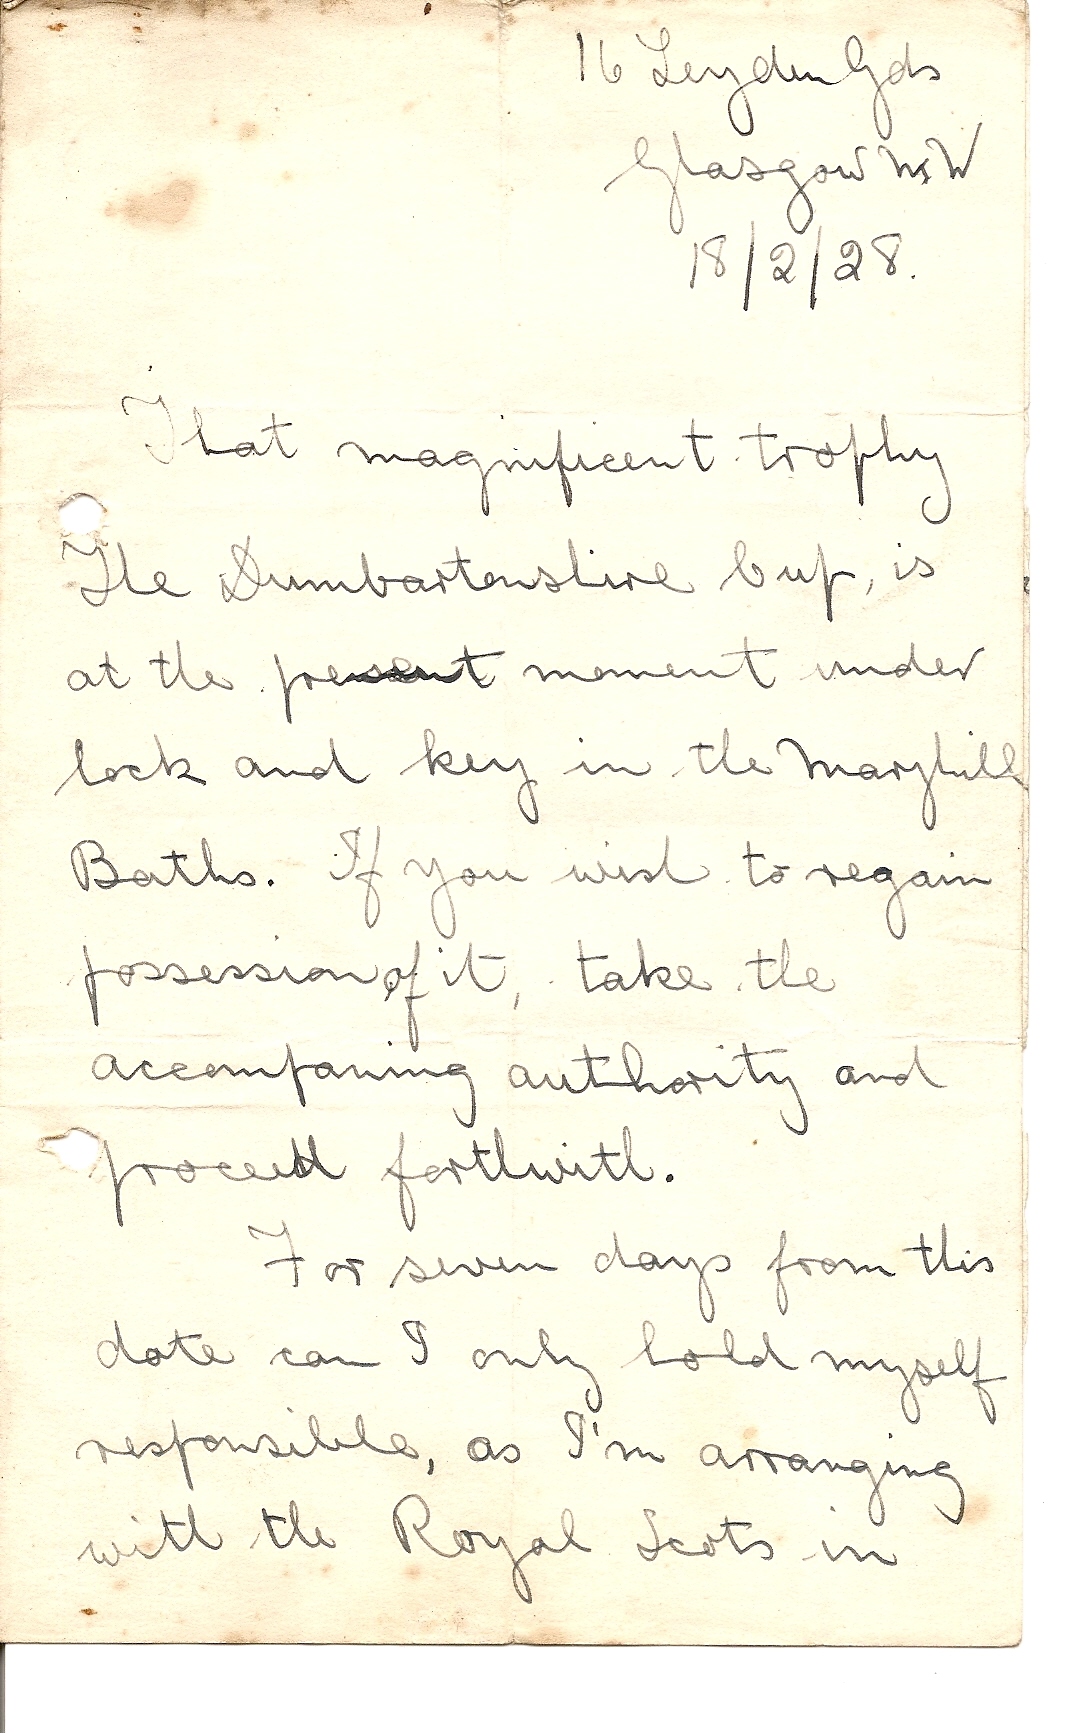 16 Leyden Gds
Glasgow N.W
18/2/28.
That magnificent trophy
The Dumbartonshire Cup, is
at the present moment under
lock and key in the Maryhill
Baths. If you wish to regain
possession of it, take the
accompaning authority and
proceed forthwith.
For seven days from this
date can I only hold myself
responsible, as I'm arranging
with the Royal Scots in